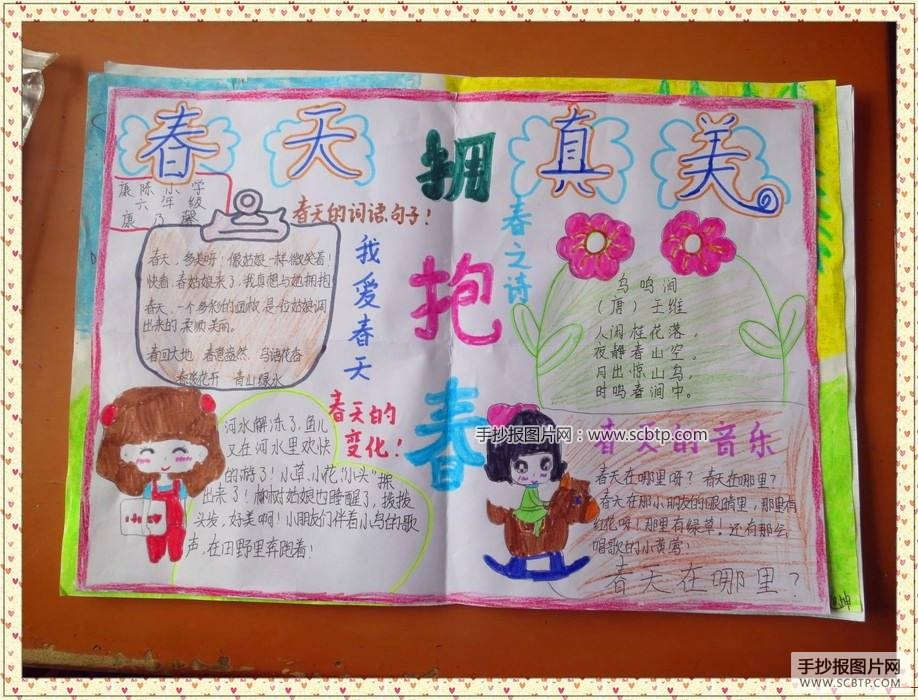 春天真美
康陈小学
六年级
康乃馨
拥抱春
春天的词语、句子!
春天，多美呀!像姑娘一样微笑着!
快看，春姑娘来了，我真想与她拥抱
春天，一个多彩的画板，是一位姑娘调
出来的柔顺美丽。
春回大地 春意盎然 鸟语花香
春暖花开 青山绿水
我爱春天
春天的
变化!
河水解冻了，鱼儿
又在河水里欢快
的游了!小草，小花，小头"探
出来了!柳树姑娘也睡醒了，拨拨
头发，好美啊!小朋友们伴着小鸟的歌
声，在田野里奔跑着!
春之诗
鸟鸣涧
(唐)王维
人闲桂花落，
夜静春山空。
月出惊山鸟，
时鸣春涧中。
春天的音乐
春天在哪里呀?春天在哪里?
春天在那小朋友的眼睛里，那里有
红花呀!那里有绿草!还有那会
唱歌的小黄莺!
春天在哪里?
手抄报图片网：www.scbtp.com
手抄报图片网
WWW.SCBTP.COM